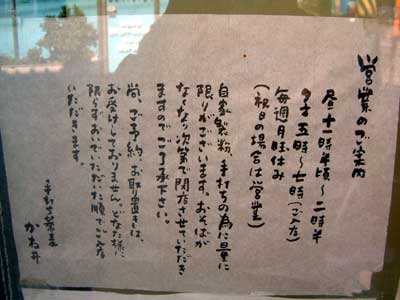 営業のご案内
昼 十一時半頃〜二時半
夕方 五時〜七時(ご入店)
毎週月曜休み
(祝日の場合は営業)
自家製粉、手打ちの為に量に
限りがございます。おそばが
なくなり次第で閉店させていただき
ますのでご了承下さい。
尚、ご予約、お取置きは、
お受けしておりません。どなた様に
限らずおいでいただいた順でご入店
いただきます。
手打ち蕎麦
かね井